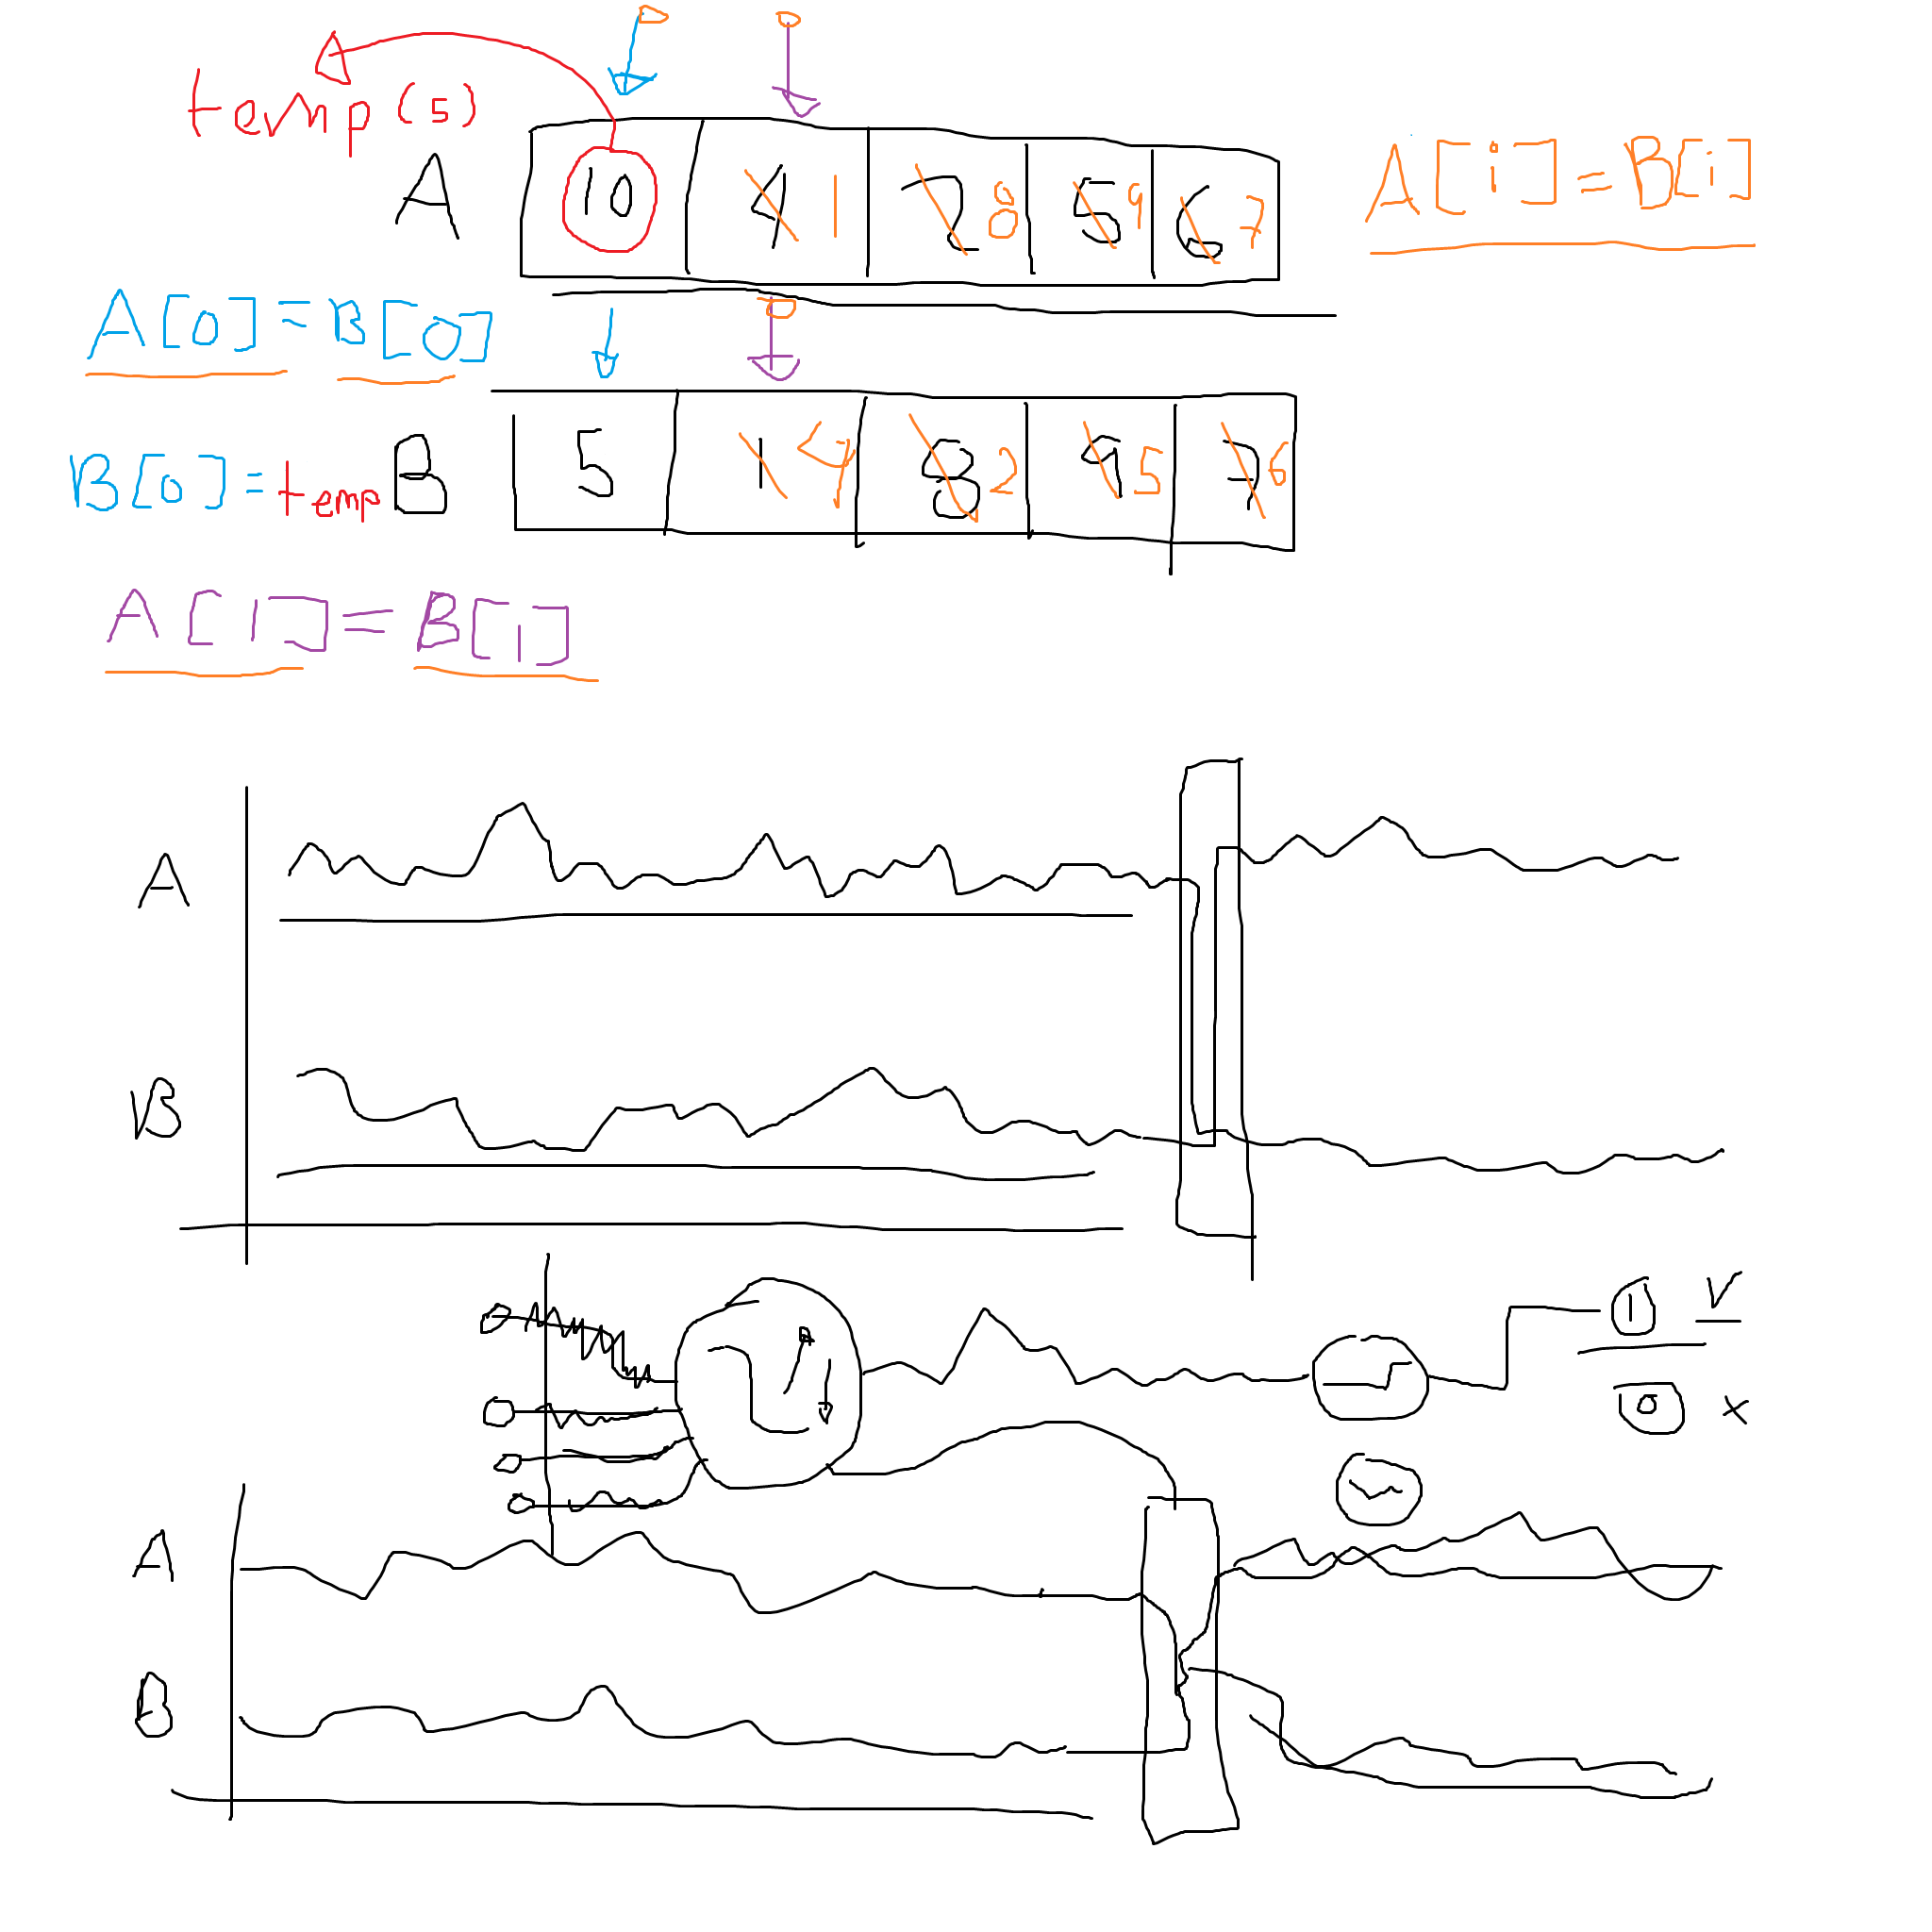 temp (5)
A 10 4 1 2 8 5 9 6 7
A[i]=B[i]
A[0]=B[0]
B[0]=temp
B 5 1 4 8 2 9 5 7 6
A[1]=B[1]
A
B
1 V
0 x
A
B